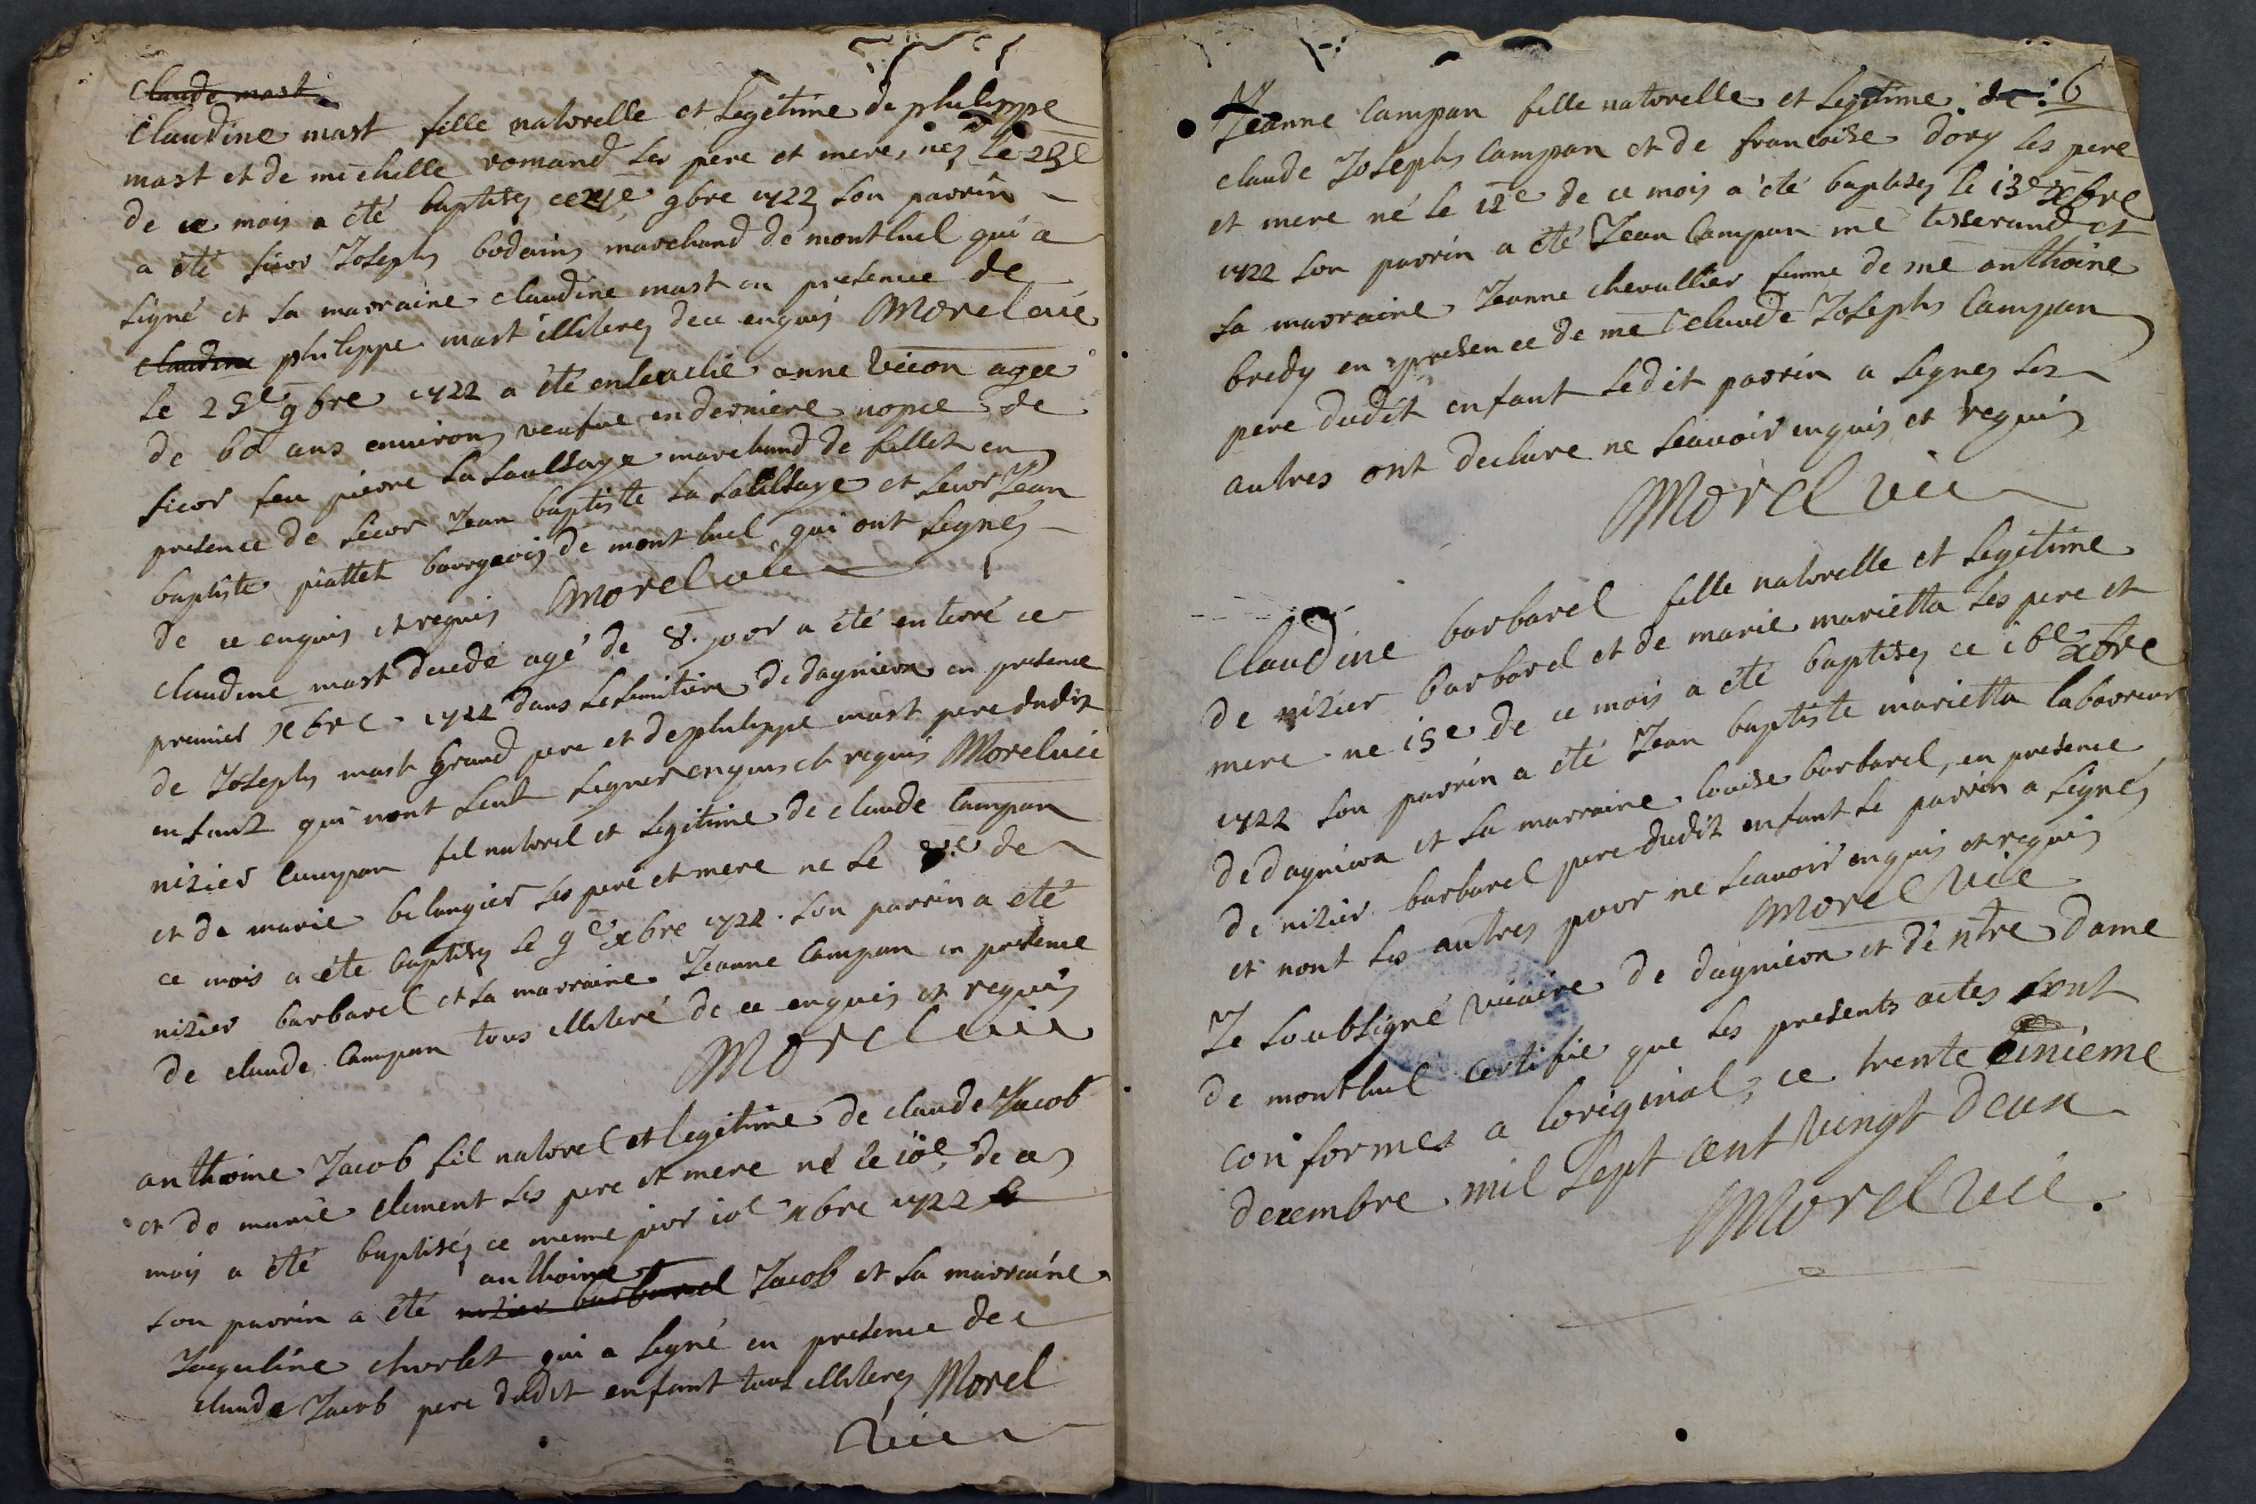 claude mast
Claudine mast fille natorelle et Legetime de philippe
mast et de michelle romand ses pere et mere, nez le 23e
de ce mois a été baptisez ce 9bre 1722 son parrin
a été sieor Joseph bodain marchand de montluel qui a
signé et sa marraine claudine mast en presence de
claudine philippe mast illiterez de ce enquis Morel vic
le 25e 9bre 1722 a été enseuelie anne agee
de 60 ans environ veufue en derniere nopce de
sieor feu pierre La saulsaye marchand de fillet en
presence de sieor Jean baptiste La saulsaye et sieor Jean
baptiste piattet bourgeois de montluel qui ont signéz
de ce enquis et requis Morel vic
claudine mast decedé agé de 8. joor a été enterré ce
premier xbre 1722 dans le semitiere de dagnieox en presence
de Joseph mast grand pere et de philippe mast pere dudit
enfant qui nont seut signer enquis et requis Morel vic
nizier campan fil natorel et legitime de claude campan
et de marie belangier ses pere et mere ne le de
ce mois a été baptisez le 9e xbre 1722. son parrin a été
nizier barbarel et sa marraine Jeanne campan en presence
de claude campan tous illiteré de ce enquis et requis
Morel vic
anthoine Jacob fil natorel et legitime de claude Jacob
et de marie clement ses pere et mere né le 10e de ce
mois a été baptiséz ce meme joor 10e xbre 1722
anthoine
son parrin a été nizier barbarel Jacob et sa marraine
Jaqueline charlet qui a signé en presence de
claude Jacob pere dudit enfant tous illiterez Morel
vic
6
Jeanne campan fille natorelle et legitime de
claude Joseph campan et de francoise dory ses pere
et mere né le 12e de ce mois a été baptisez le 13e xbre
1722 son parrin a été Jean campan me tisserand et
sa marraine Jeanne chevallier femme de me anthoine
bredy en presence de me claude Joseph campan
pere dudit enfant ledit parrin a signez les
autres ont declare ne scauoir enquis et requis
Morel vic
Claudine barbarel fille natorelle et legitime
de nizier barbarel et de marie marietta ses pere et
mere ne 15e de ce mois a été baptisez ce 16e xbre
1722 son parrin a été Jean baptiste marietta laboureur
de dagnieox et sa marraine louise barbarel, en presence
de nizier barbarel pere dudit enfant le parrin a signéz
et nont les autres poor ne scauoir enquis et requis
Morel vic
Je soubsigné vicaire de dagnieox et de ntre dame
de montluel certifie que les presents actes sont
conformes a loriginal, ce trente unieme
decembre mil sept cent vingt deux
Morel vic.